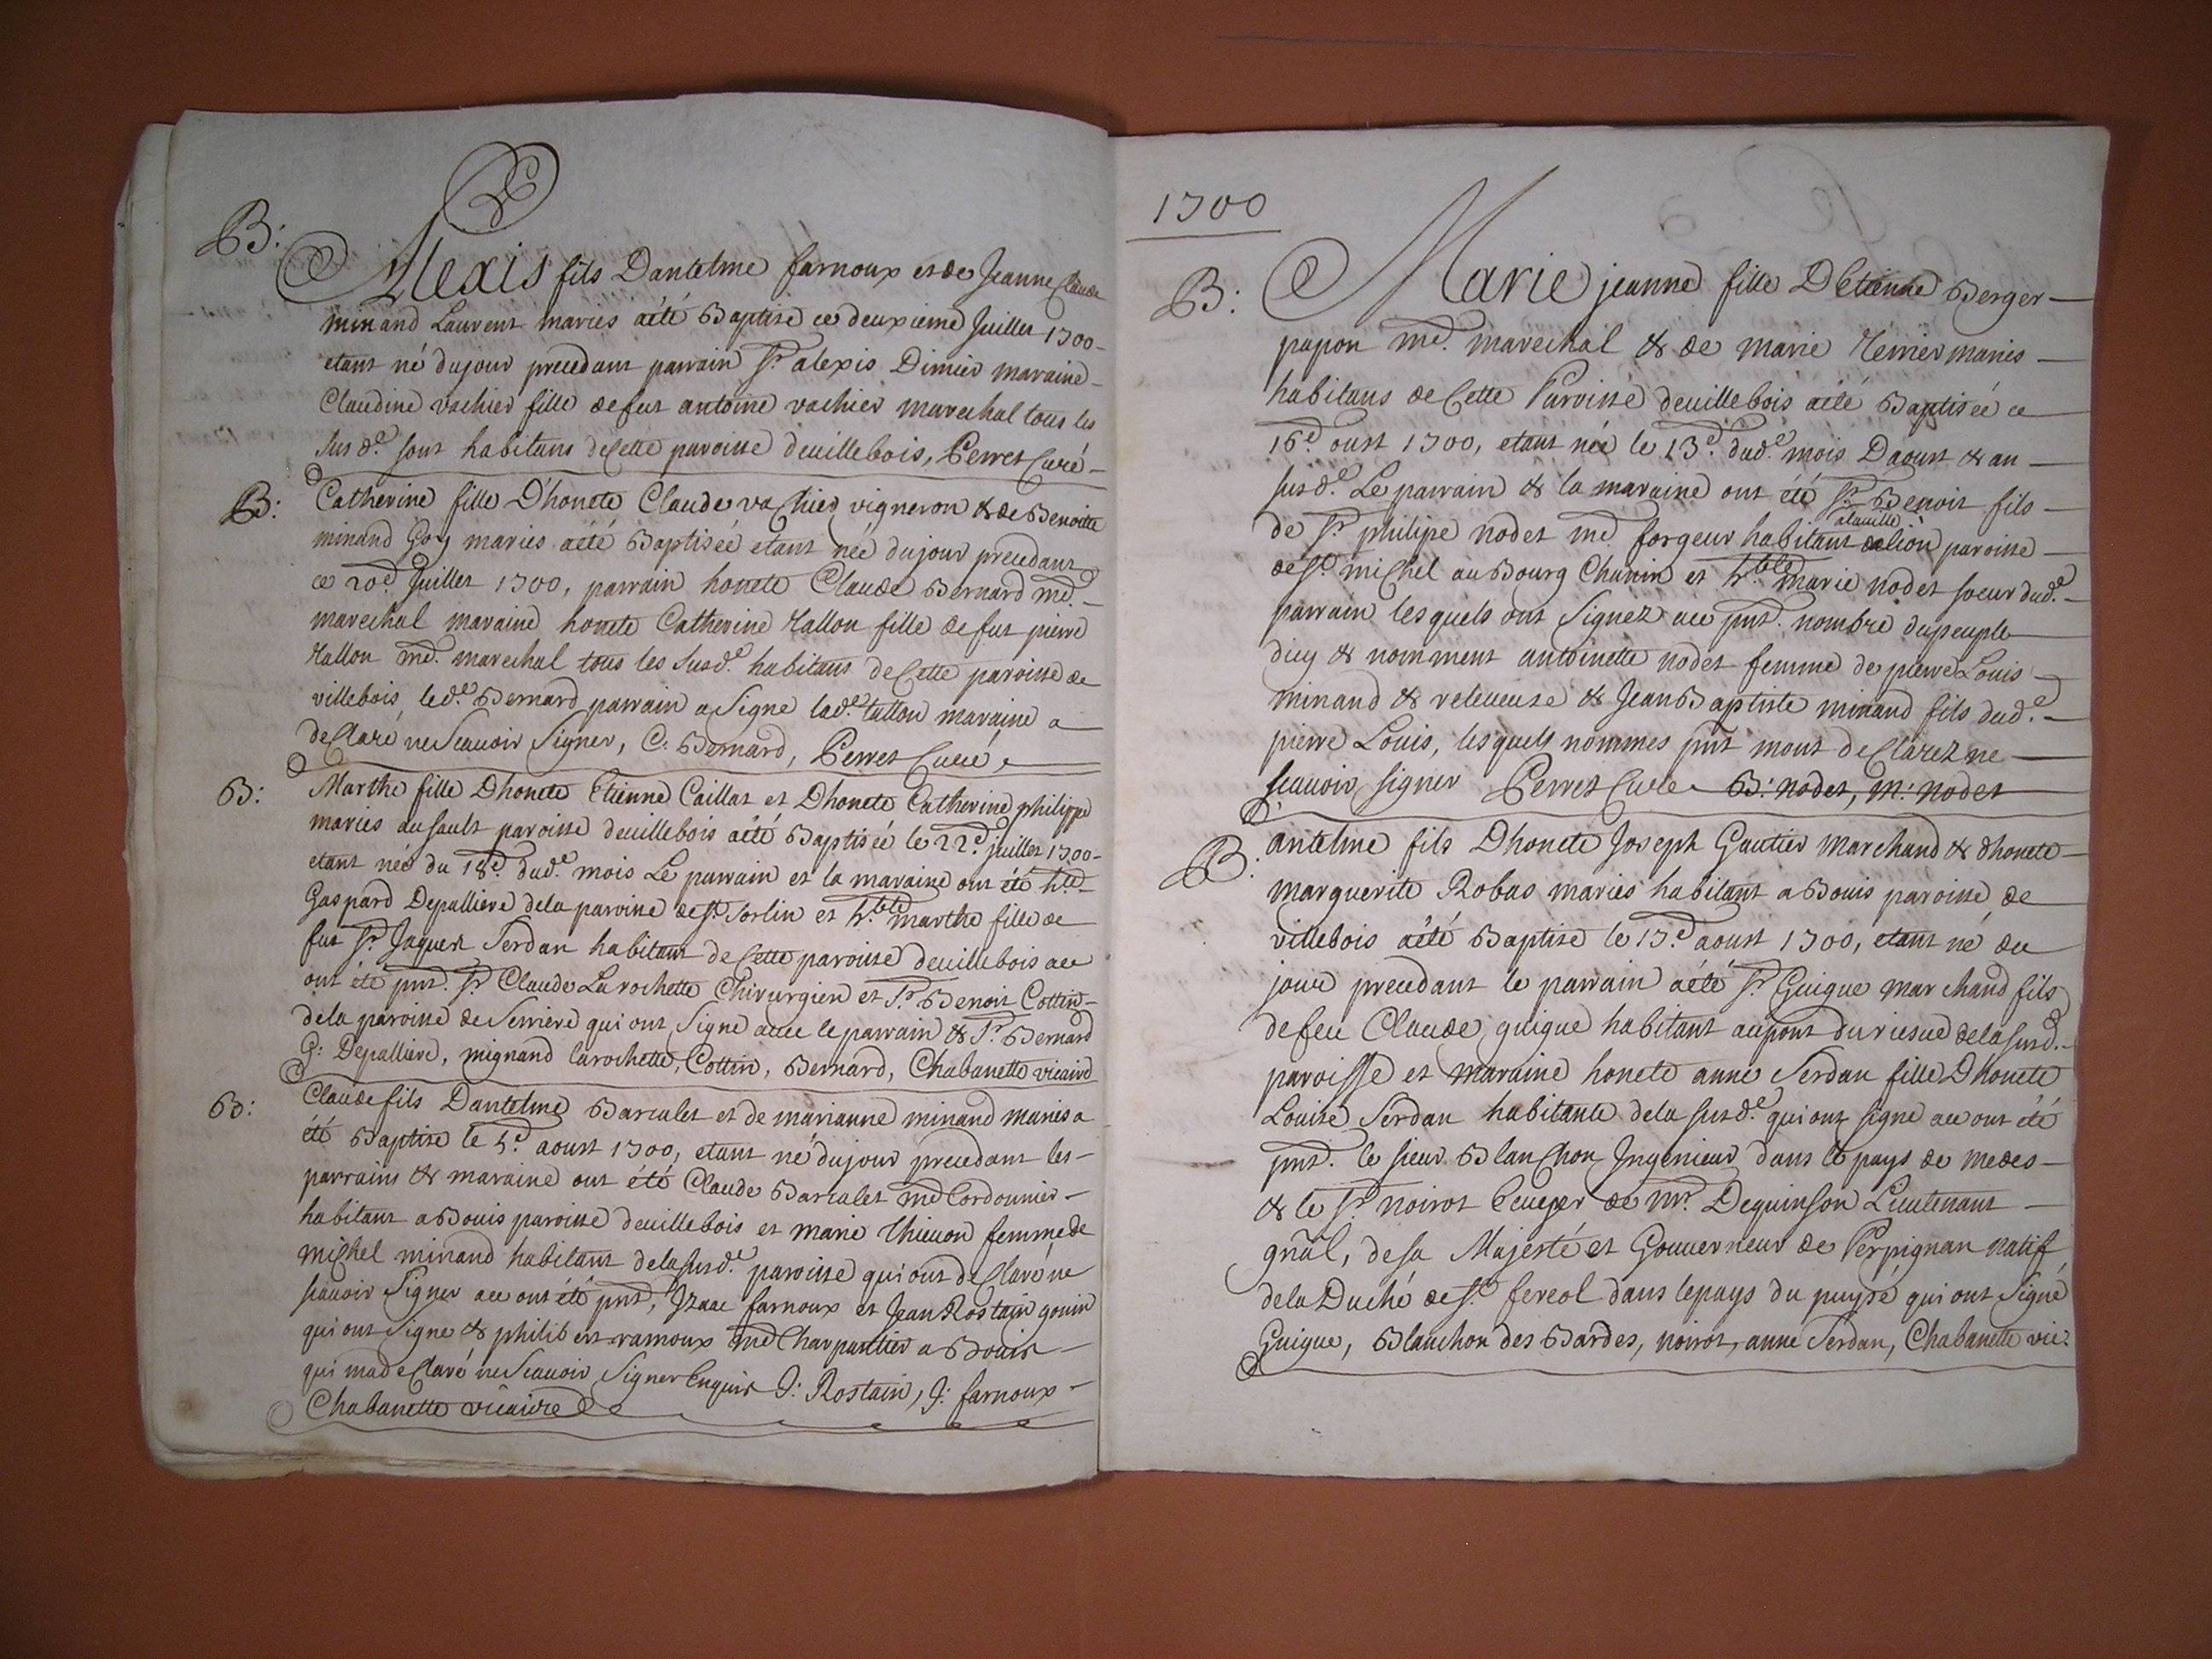 B:
Alexis fils Dantelme farnoux et de Jeanne Claude
minand Laurent mariés aété Baptisé ce deuxieme Juillet 1700
etant né dujour precedant parrain Sr. alexis Dimier maraine
Claudine vachier fille defut antoine vachier marechal tous les
susd.e sont habitans decette paroisse deuillebois, Perret Curé
B:
Catherine fille D'honete Claude vachier vigneron & de Benoitte
minand Goy mariés aété Baptisée etant née dujour precedant
ce 20.e Juillet 1700, parrain honete Claude Bernard md.
marechal maraine honete Catherine tallon fille defut pierre
tallon md. marechal tous les susd.e habitans decette paroisse de
villebois, led.e Bernard parrain a signé lad.e tallon maraine a
declaré nescauoir signer, C: Bernard, Perret Curé
B:
Marthe fille Dhonete Etienne Caillat et Dhonete Catherine philippe
mariés ausault paroisse deuillebois aété Baptisée le 22.e juillet 1700
etant née du 18.e dud.e mois Le parrain et la maraine ont été
Gaspard Depalliere dela paroisse de St. Sorlin et marthe fille de
fut Sr. Jaques Serdan habitant decette paroisse deuillebois ace
ont été pnt. Sr. Claude Larochette Chirurgien et Sr. Benoit Cottin
dela paroisse de Serriere qui ont signé auec le parrain & Sr. Bernard
G: Depalliere, mignand larochette, Cottin, Bernard, Chabanette vicaire
B:
Claude fils Dantelme Barcalet et de marianne minand mariés a
été Baptisé le 5.e aoust 1700, etant né dujour precedant les
parrains & maraine ont été Claude Barcalet md Cordonnier
habitant a Bouis paroisse deuillebois et marie thieuon femme de
michel minand habitant delasusd.e paroisse qui ont declaré ne
scauoir signer ace ont été pnt, Izaac farnoux et Jean Rostain gouin
qui ont signé & philibert ramoux md Charpantier a Bouis
qui madeclaré nescauoir signer Enquis J: Rostain, J: farnoux
Chabanette vicaire
1700
B:
Marie jeanne fille DEtienne Berger
papon md. marechal & de marie terrier mariés
habitans de Cette Paroisse deuillebois aété Baptisée ce
16.e oust 1700, etant née le 13.e dud.e mois Daoust & an
susd.e Le parrain & la maraine ont été Sr. Benoit fils
de Sr. philipe nodet md forgeur habitant alauille delion paroisse
de St. michel auBourg Chanin et marie nodet soeur dud.e
parrain lesquels ont signez ace pnt. nombre dupeuple
dicy & nomment antoinette nodet femme de pierre Louis
minand & releueuse & Jean Baptiste minand fils dud.e
pierre Louis, lesquels nommes pnt mont declarez ne
scauoir signer Perret Curé B: nodet, m: nodet
B:
antelme fils Dhonete Joseph Gautier Marchand & dhonete
marguerite Robas mariés habitant a Bouis paroisse de
villebois aété Baptisé le 13.e aoust 1700, etant né du
jour precedant le parrain aété Sr. Guigue marchand fils
defeu Claude guigue habitant aupont duriesue delasusd.
paroisse et maraine honete anne Serdan fille Dhonete
Louise Serdan habitante dela susd.e qui ont signé ace ont été
pnt. le sieur Blanchon Ingenieur dans le pays de medes
& le Sr. noirot Ecuyer de Mr. Dequinson Lieutenant
gñal, desa Majesté et Gouuerneur de Perpignan natif
dela Duché de St. fereol dans lepays du puysé qui ont signé
Guigue, Blanchon des Bardes, noirot, anne Serdan, Chabanette vic.